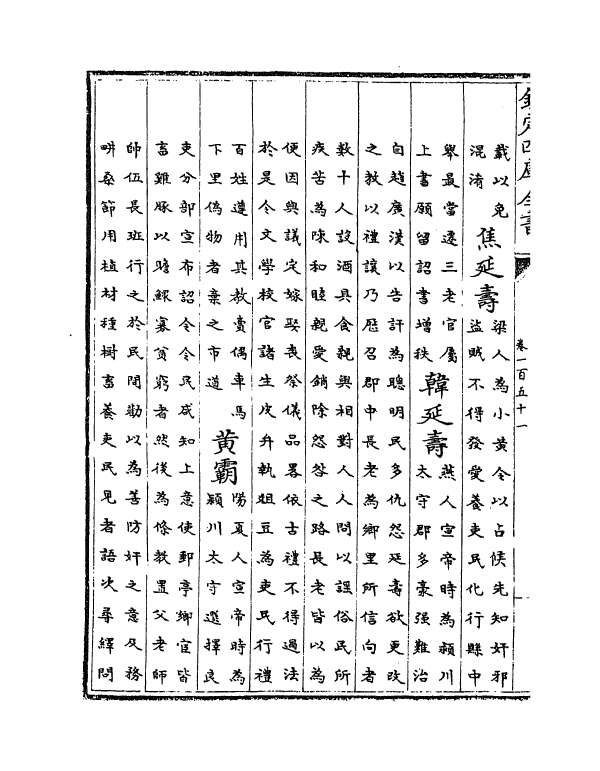 欽定四庫全書
卷一百五十一
載以免
混淆
焦延壽
梁人為小黃令以占候先知奸邪
盜賊不得發愛養吏民化行縣中
舉最當遷三老官屬
上書願留詔書增秩
韓延壽
燕人宣帝時為潁川
太守郡多豪强難治
自趙廣漢以告訐為聰明民多仇怨延壽欲更改
之教以禮讓乃歷召郡中長老為鄉里所信向者
數十人設酒具食親與相對人人問以謡俗民所
疾苦為陳和睦親愛銷除怨咎之路長老皆以為
便因與議定嫁娶喪祭儀品畧依古禮不得過法
於是令文學校官諸生皮弁執俎豆為吏民行禮
百姓遵用其教賣偶車馬
下里偽物者棄之市道
黃霸
陽夏人宣帝時為
潁川太守選擇良
吏分部宣布詔令令民咸知上意使郵亭鄉官皆
畜雞豚以贍鰥寡貧窮者然後為條教置父老師
帥伍長班行之於民間勸以為善防奸之意及務
畊桑節用植材種樹畜養吏民見者語次尋繹問